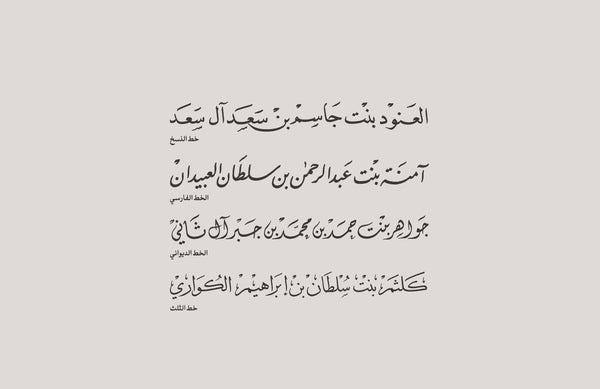 العَنود بنت جَاسِم بن سَعَد آل سَعَد
خط النسخ
آمنَة بنْت عَبد الرحمٰن بن سلطان العبيدان
الخط الفارسي
جَواهر بنت حمَد بن محمَّد بن جَبر آل ثَاني
الخط الديواني
كَلثَم بنْت سُلطَان بن إبرَاهيْم الكُوَاري
خط الثلث